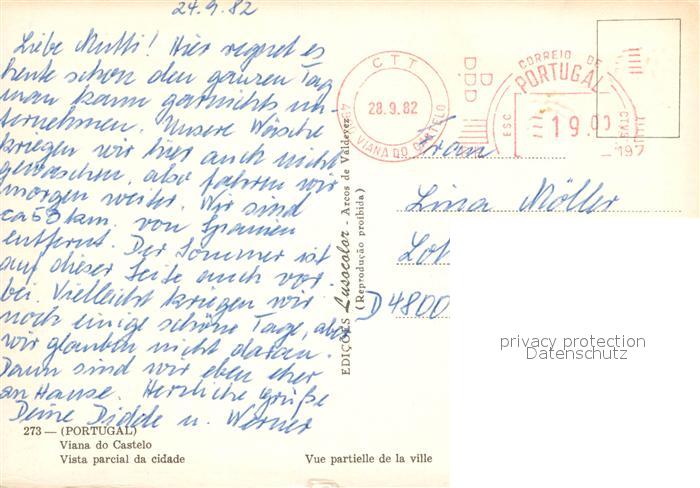 24.9.82
Liebe Mutti! Hier regnet es
heute schon den ganzen Tag
man kann garnichts un
ternehmen. Unsere Wäsche
kriegen wir hier auch nicht
gewaschen, also fahren wir
morgen weiter. Wir sind
ca 63 km von Spanien
entfernt. Der Sommer ist
auf dieser Seite auch vor-
bei. Vielleicht kriegen wir
noch einige schöne Tage, aber
wir glauben nicht daran.
Dann sind wir eben eher
an Hause. Herzliche Grüße
Deine Didele u. Werner
273 — (PORTUGAL)
Viana do Castelo
Vista parcial da cidade
Vue partielle de la ville
EDIÇÕES Lusocolor - Arcos de Valdevez
(Reprodução proibida)
CTT
28.9.82
4900 VIANA DO CASTELO
CORREIO DE
PORTUGAL
ESC
19 00
CTVS
197
Frau
Lina Möller
Lot
D 4800
privacy protection
Datenschutz